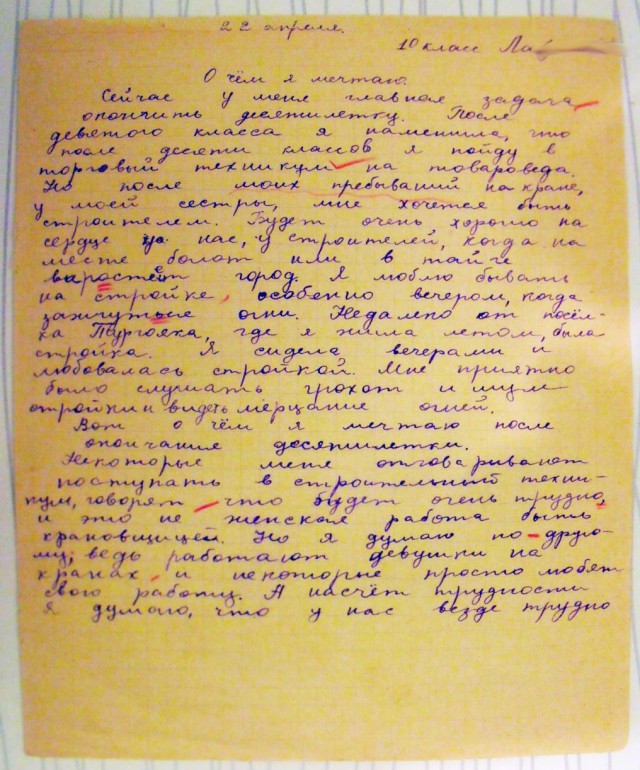 22 апреля.
10 класс Ла
О чём я мечтаю.
Сейчас у меня главная задача
окончить десятилетку. После
девятого класса я наменила, что
после десяти классов я пойду в
торговый техникум на товароведа.
Но после моих пребываний на кране,
у моей сестры, мне хочется быть
строителем. Будет очень хорошо на
сердце у нас, у строителей, когда на
месте болот или в тайге
варастеёт город. Я люблю бывать
на стройке, особенно вечером, когда
зажгутьсе огни. Недалеко от посёл-
ка Тургояка, где я жила летом, была
стройка. Я сидела вечерами и
любовалась стройкой. Мне приятно
было слушать грохот и шум
стройки и видеть мерцание огней.
Вот о чём я мечтаю после
окончания десятилетки.
Некоторые меня отговаривают
поступать в строительный техни-
кум, говорят что будет очень трудно,
и это не женская работа быть
крановщицей. Но я думаю по-друго-
му; ведь работают девушки на
кранах, и некоторые просто любят
свою работу. А насчёт трудности
я думаю, что у нас везде трудно